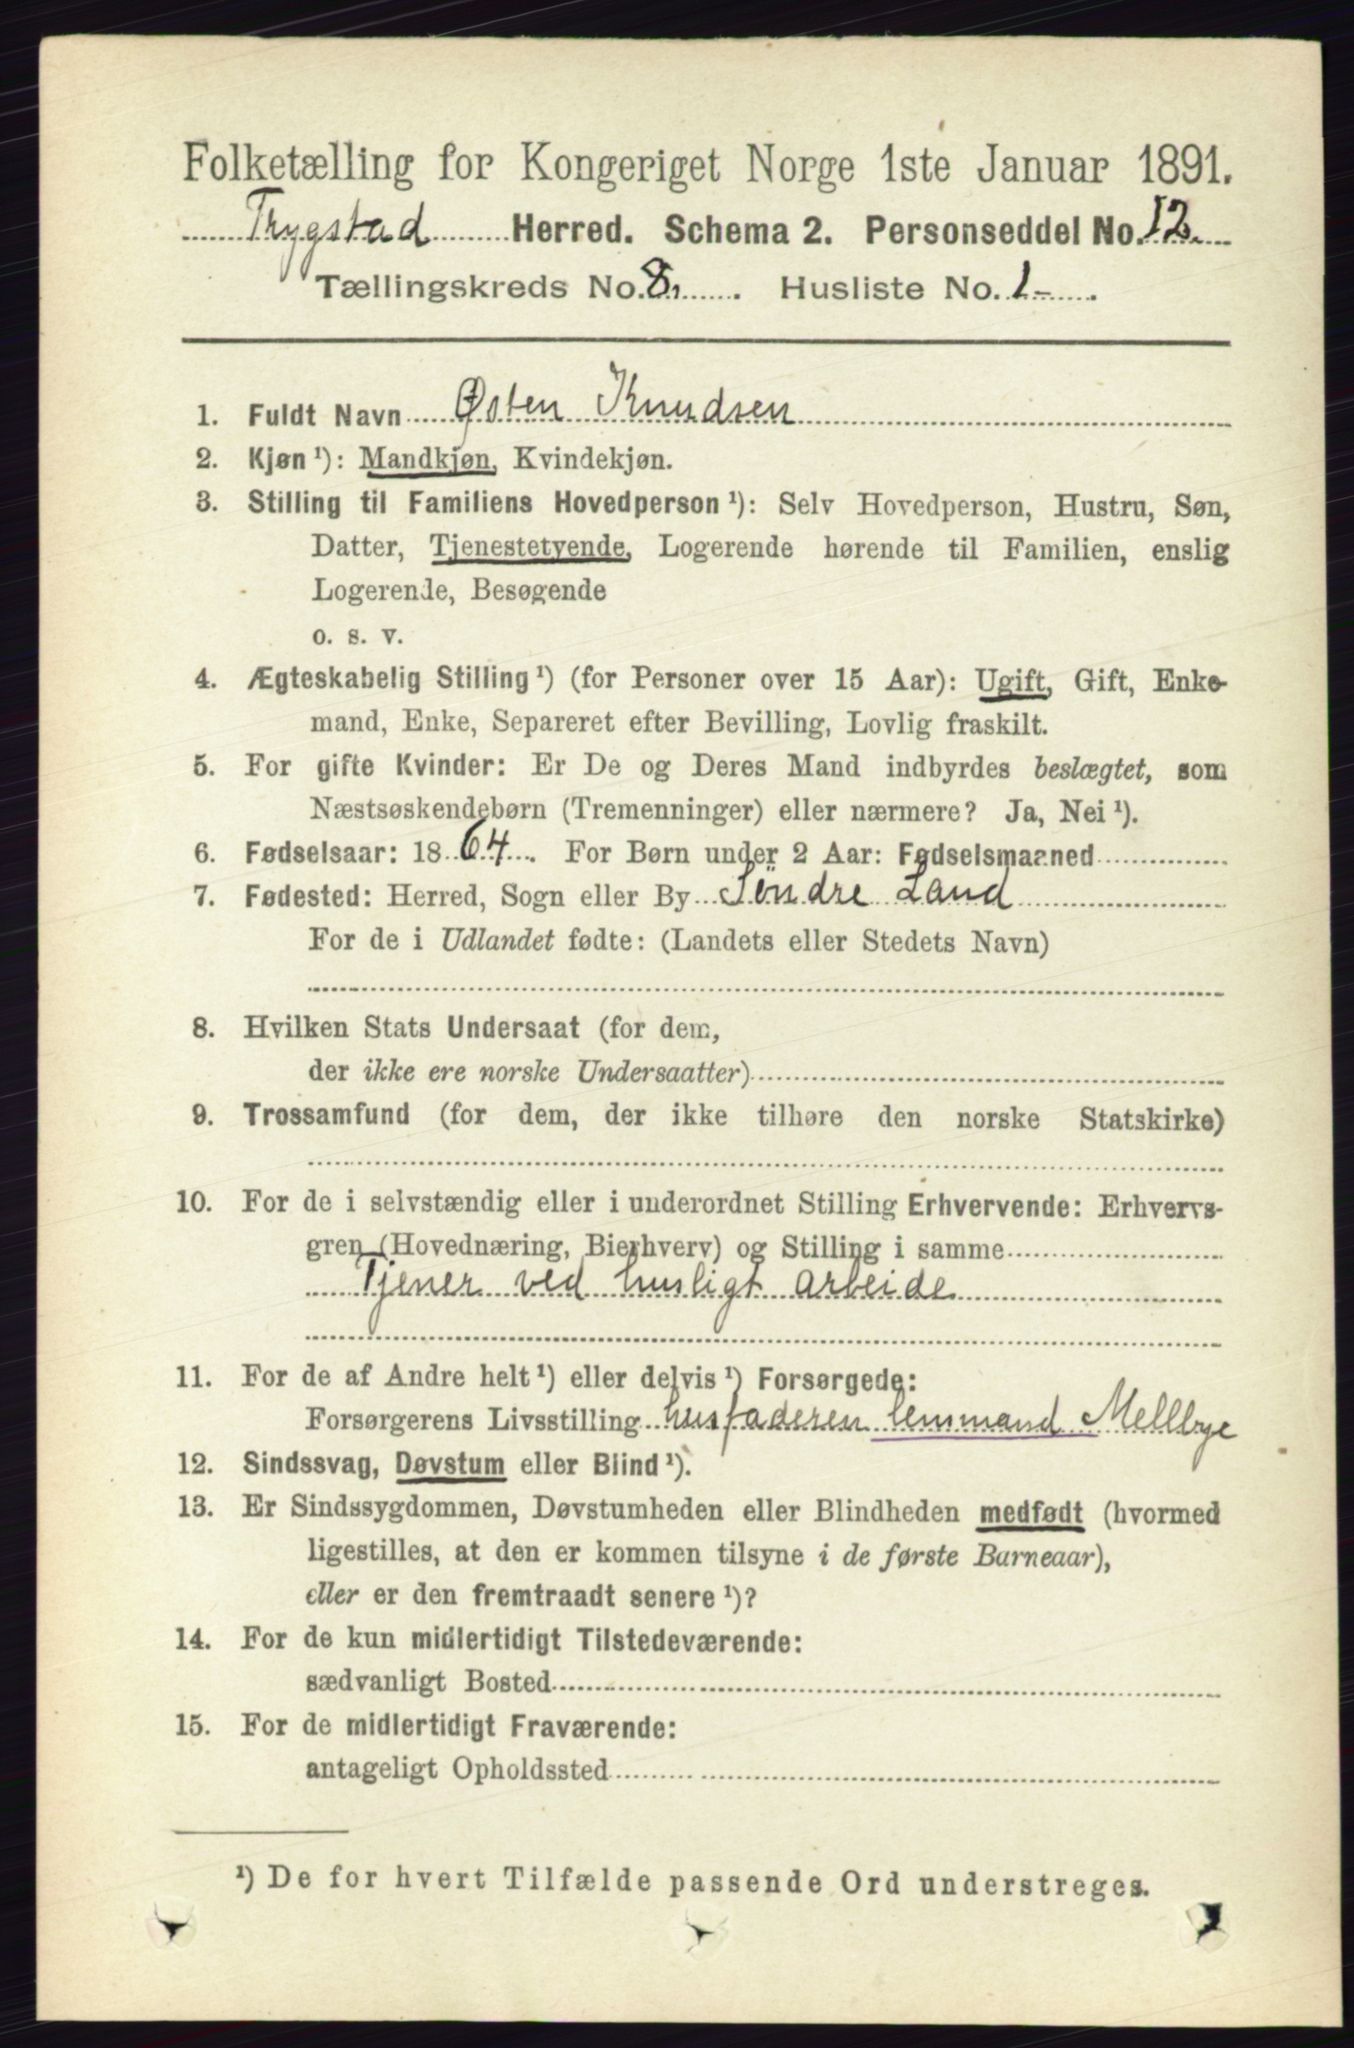 Folketælling for Kongeriget Norge 1ste Januar 1891.
Trygstad Herred. Schema 2. Personseddel No. 12.
Tællingskreds No. 8, . Husliste No. 1- .
1. Fuldt Navn Østen Knudsen
2. Kjøn ¹): Mandkjøn, Kvindekjøn.
3. Stilling til Familiens Hovedperson ¹): Selv Hovedperson, Hustru, Søn,
Datter, Tjenestetyende, Logerende hørende til Familien, enslig
Logerende, Besøgende
o. s. v.
4. Ægteskabelig Stilling ¹) (for Personer over 15 Aar): Ugift, Gift, Enke-
mand, Enke, Separeret efter Bevilling, Lovlig fraskilt.
5. For gifte Kvinder: Er De og Deres Mand indbyrdes beslægtet, som
Næstsøskendebørn (Tremenninger) eller nærmere? Ja, Nei ¹).
6. Fødselsaar: 1864. For Børn under 2 Aar: Fødselsmaaned
7. Fødested: Herred, Sogn eller By Söndre Land
For de i Udlandet fødte: (Landets eller Stedets Navn)
8. Hvilken Stats Undersaat (for dem,
der ikke ere norske Undersaatter)
9. Trossamfund (for dem, der ikke tilhøre den norske Statskirke)
10. For de i selvstændig eller i underordnet Stilling Erhvervende: Erhvervs-
gren (Hovednæring, Bierhverv) og Stilling i samme
Tjener ved husligt arbeide
11. For de af Andre helt ¹) eller delvis ¹) Forsørgede:
Forsørgerens Livsstilling husfaderen lensmand Mellbye
12. Sindssvag, Døvstum eller Blind ¹).
13. Er Sindssygdommen, Døvstumheden eller Blindheden medfødt (hvormed
ligestilles, at den er kommen tilsyne i de første Barneaar),
eller er den fremtraadt senere ¹)?
14. For de kun midlertidigt Tilstedeværende:
sædvanligt Bosted
15. For de midlertidigt Fraværende:
antageligt Opholdssted
¹) De for hvert Tilfælde passende Ord understreges.